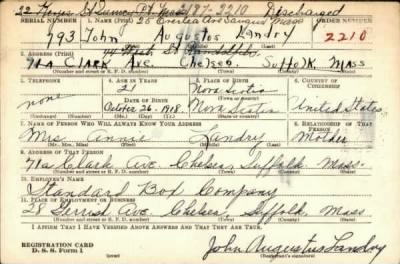 22 Hayes St 2187-2210 Discharged
SERIAL NUMBER 1. Name (Print) 26 Mass ORDER NUMBER
793 John Augustus Landry 2210
(First) (Middle) (Last)
2. ADDRESS (Print)
71A Clark Ave. Chelsea, Suffolk, Mass
(Number and street or R. F. D. number) (Town) (County) (State)
3. TELEPHONE 4. AGE IN YEARS 5. PLACE OF BIRTH 6. COUNTRY OF CITIZENSHIP
none 21 Nova Scotia
DATE OF BIRTH (Town or county)
October 26-1918. Nova Scotia United States
(Exchange) (No.) (Mo.) (Day) (Yr.) (State or country)
7. NAME OF PERSON WHO WILL ALWAYS KNOW YOUR ADDRESS 8. RELATIONSHIP OF THAT PERSON
Mrs. Annie Landry Mother
(Mr., Mrs., Miss) (First) (Middle) (Last)
9. ADDRESS OF THAT PERSON
71a Clark Ave Chelsea Suffolk Mass.
(Number and street or R. F. D. number) (Town) (County) (State)
10. EMPLOYER'S NAME
Standard Box Company
11. PLACE OF EMPLOYMENT OR BUSINESS
28 Gerrish Ave. Chelsea, Suffolk, Mass
(Number and street or R. F. D. number) (Town) (County) (State)
I AFFIRM THAT I HAVE VERIFIED ABOVE ANSWERS AND THAT THEY ARE TRUE.
REGISTRATION CARD
D. S. S. Form 1 John Augustus Landry
(Registrant's signature)